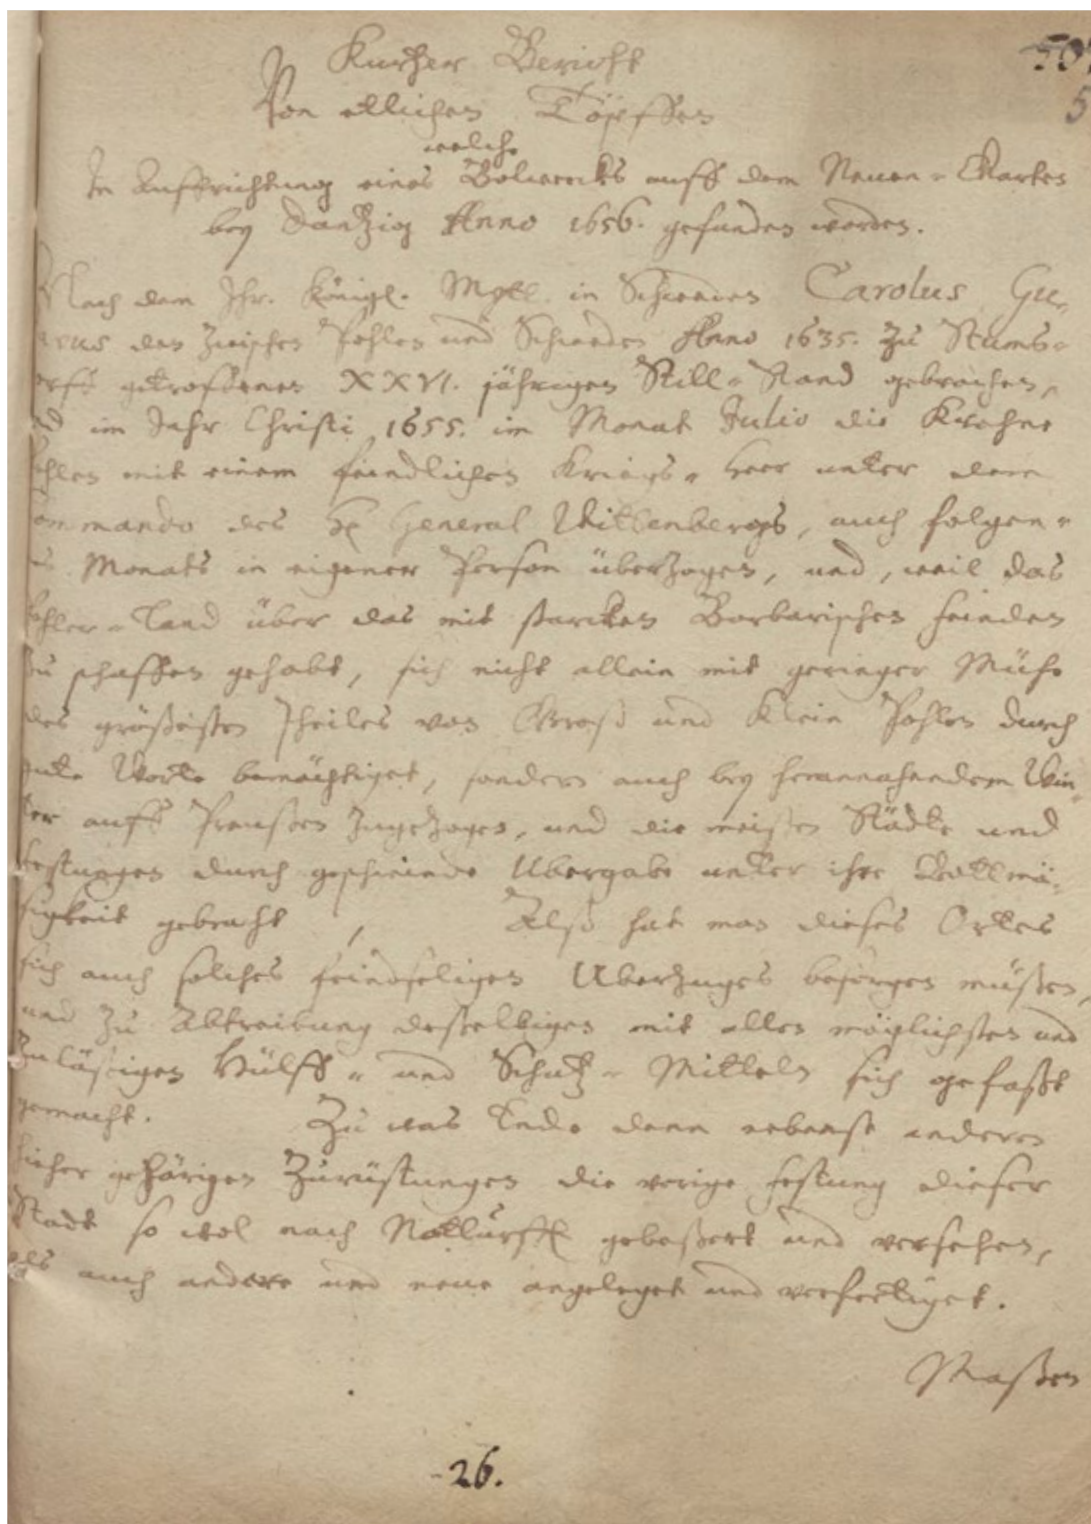 Kurtzer Bericht
Von etlichen Töpffen
welche
In Auffrichtung eines Bolwercks auff dem Neuen-Garten
bey Dantzig Anno 1656. gefunden worden.
507
5
Nach dem Ihr. Königl. Mytt. in Schweden Carolus Gu-
avus den zwischen Pohlen und Schweden Anno 1635. zu Stums-
orff getroffenen XXVI. jährigen Still-Stand gebrochen,
nd im Jahr Christi 1655. im Monat Julio die Krohne
ohlen mit einem feindlichen Kriegs-Heer unter dem
ommando des H General Wittenbergs, auch folgen-
es Monats in eigener Person überzogen, und, weil das
ohler-Land über das mit starcken Barbarischen Feinden
zu schaffen gehabt, sich nicht allein mit geringer Mühe
des grösseisten Theiles von Groß und Klein Pohlen durch
gute Worte bemächtiget, sondern auch bey herannahendem Win-
ter auff Preussen zugezogen, und die meisten Städte und
Festungen durch geschwinde Ubergabe unter ihre Bottmä-
ßigkeit gebracht, Alß hat man dieses Ortes
sich auch solches feindseligen Uberzuges besorgen müßen,
und zu Abtreibung desselbigen mit allen möglichsten und
zuläßigen Hülff- und Schutz-Mitteln sich gefaßt
gemacht. Zu was Ende denn nebenst anderen
hieher gehörigen Zurüstungen die vorige Festung dieser
Stadt so wol nach Notturfft gebeßert und versehen,
als auch andere und neue angeleget und verfertiget.
Maßen
-26.